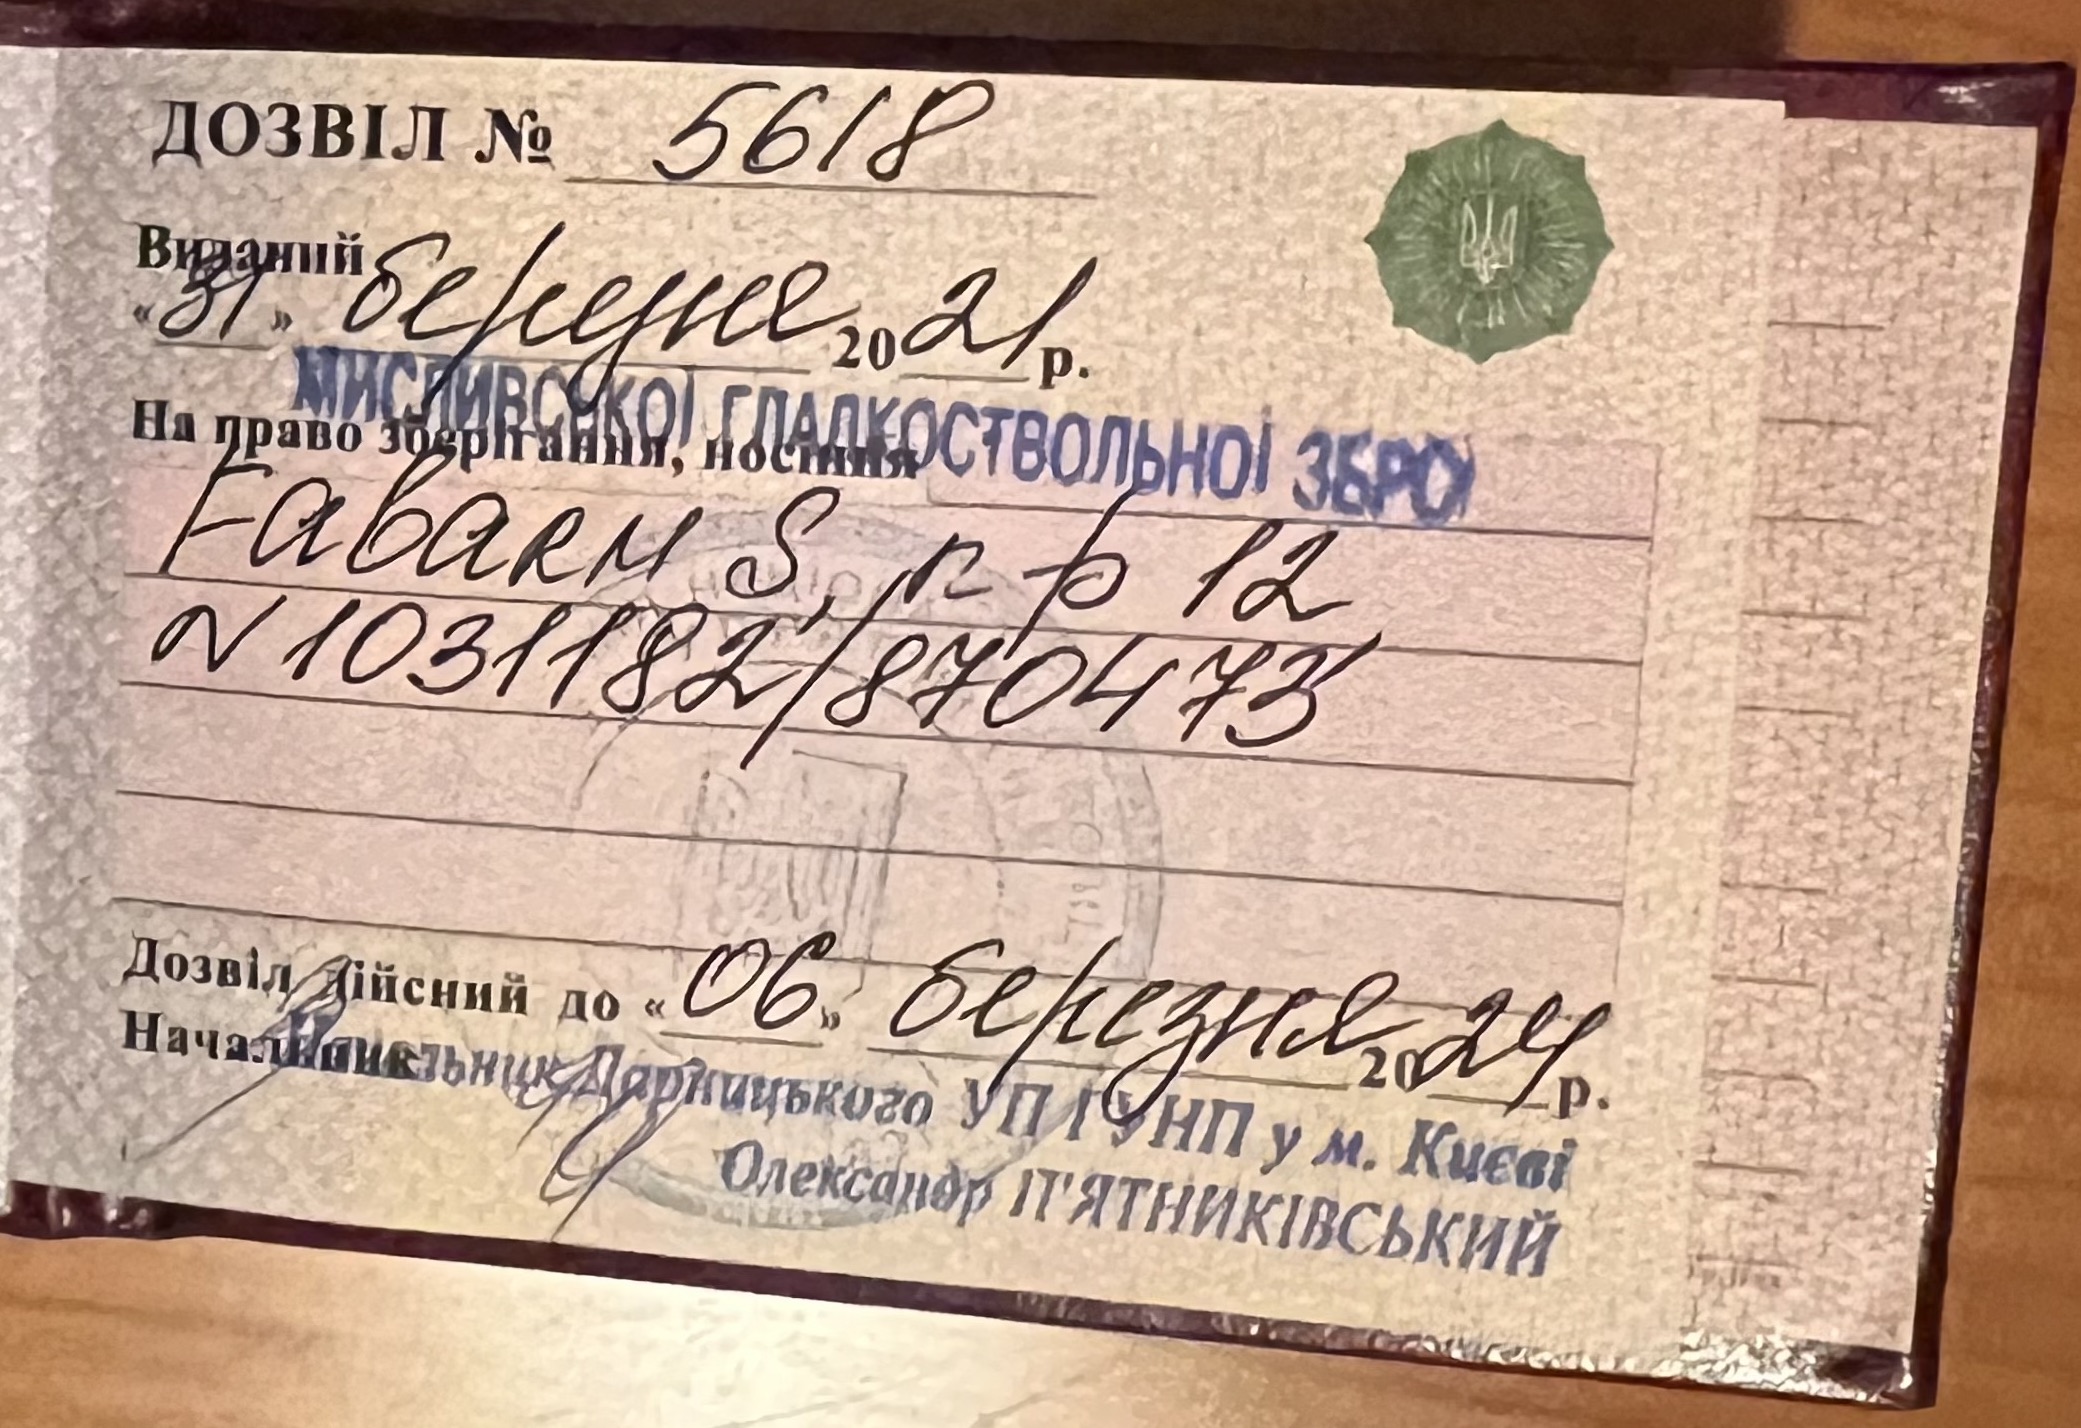 ДОЗВІЛ № 5618
Виданий
«31» березня 2021 р.
МИСЛИВСЬКОЇ ГЛАДКОСТВОЛЬНОЇ ЗБРОЇ
На право зберігання, носіння
Fabarm S, к-р 12
N 1031182/870473
Дозвіл дійсний до «06» березня 2024 р.
Начальник
Начальник Дарницького УП ГУНП у м. Києві
Олександр П'ЯТНИКІВСЬКИЙ